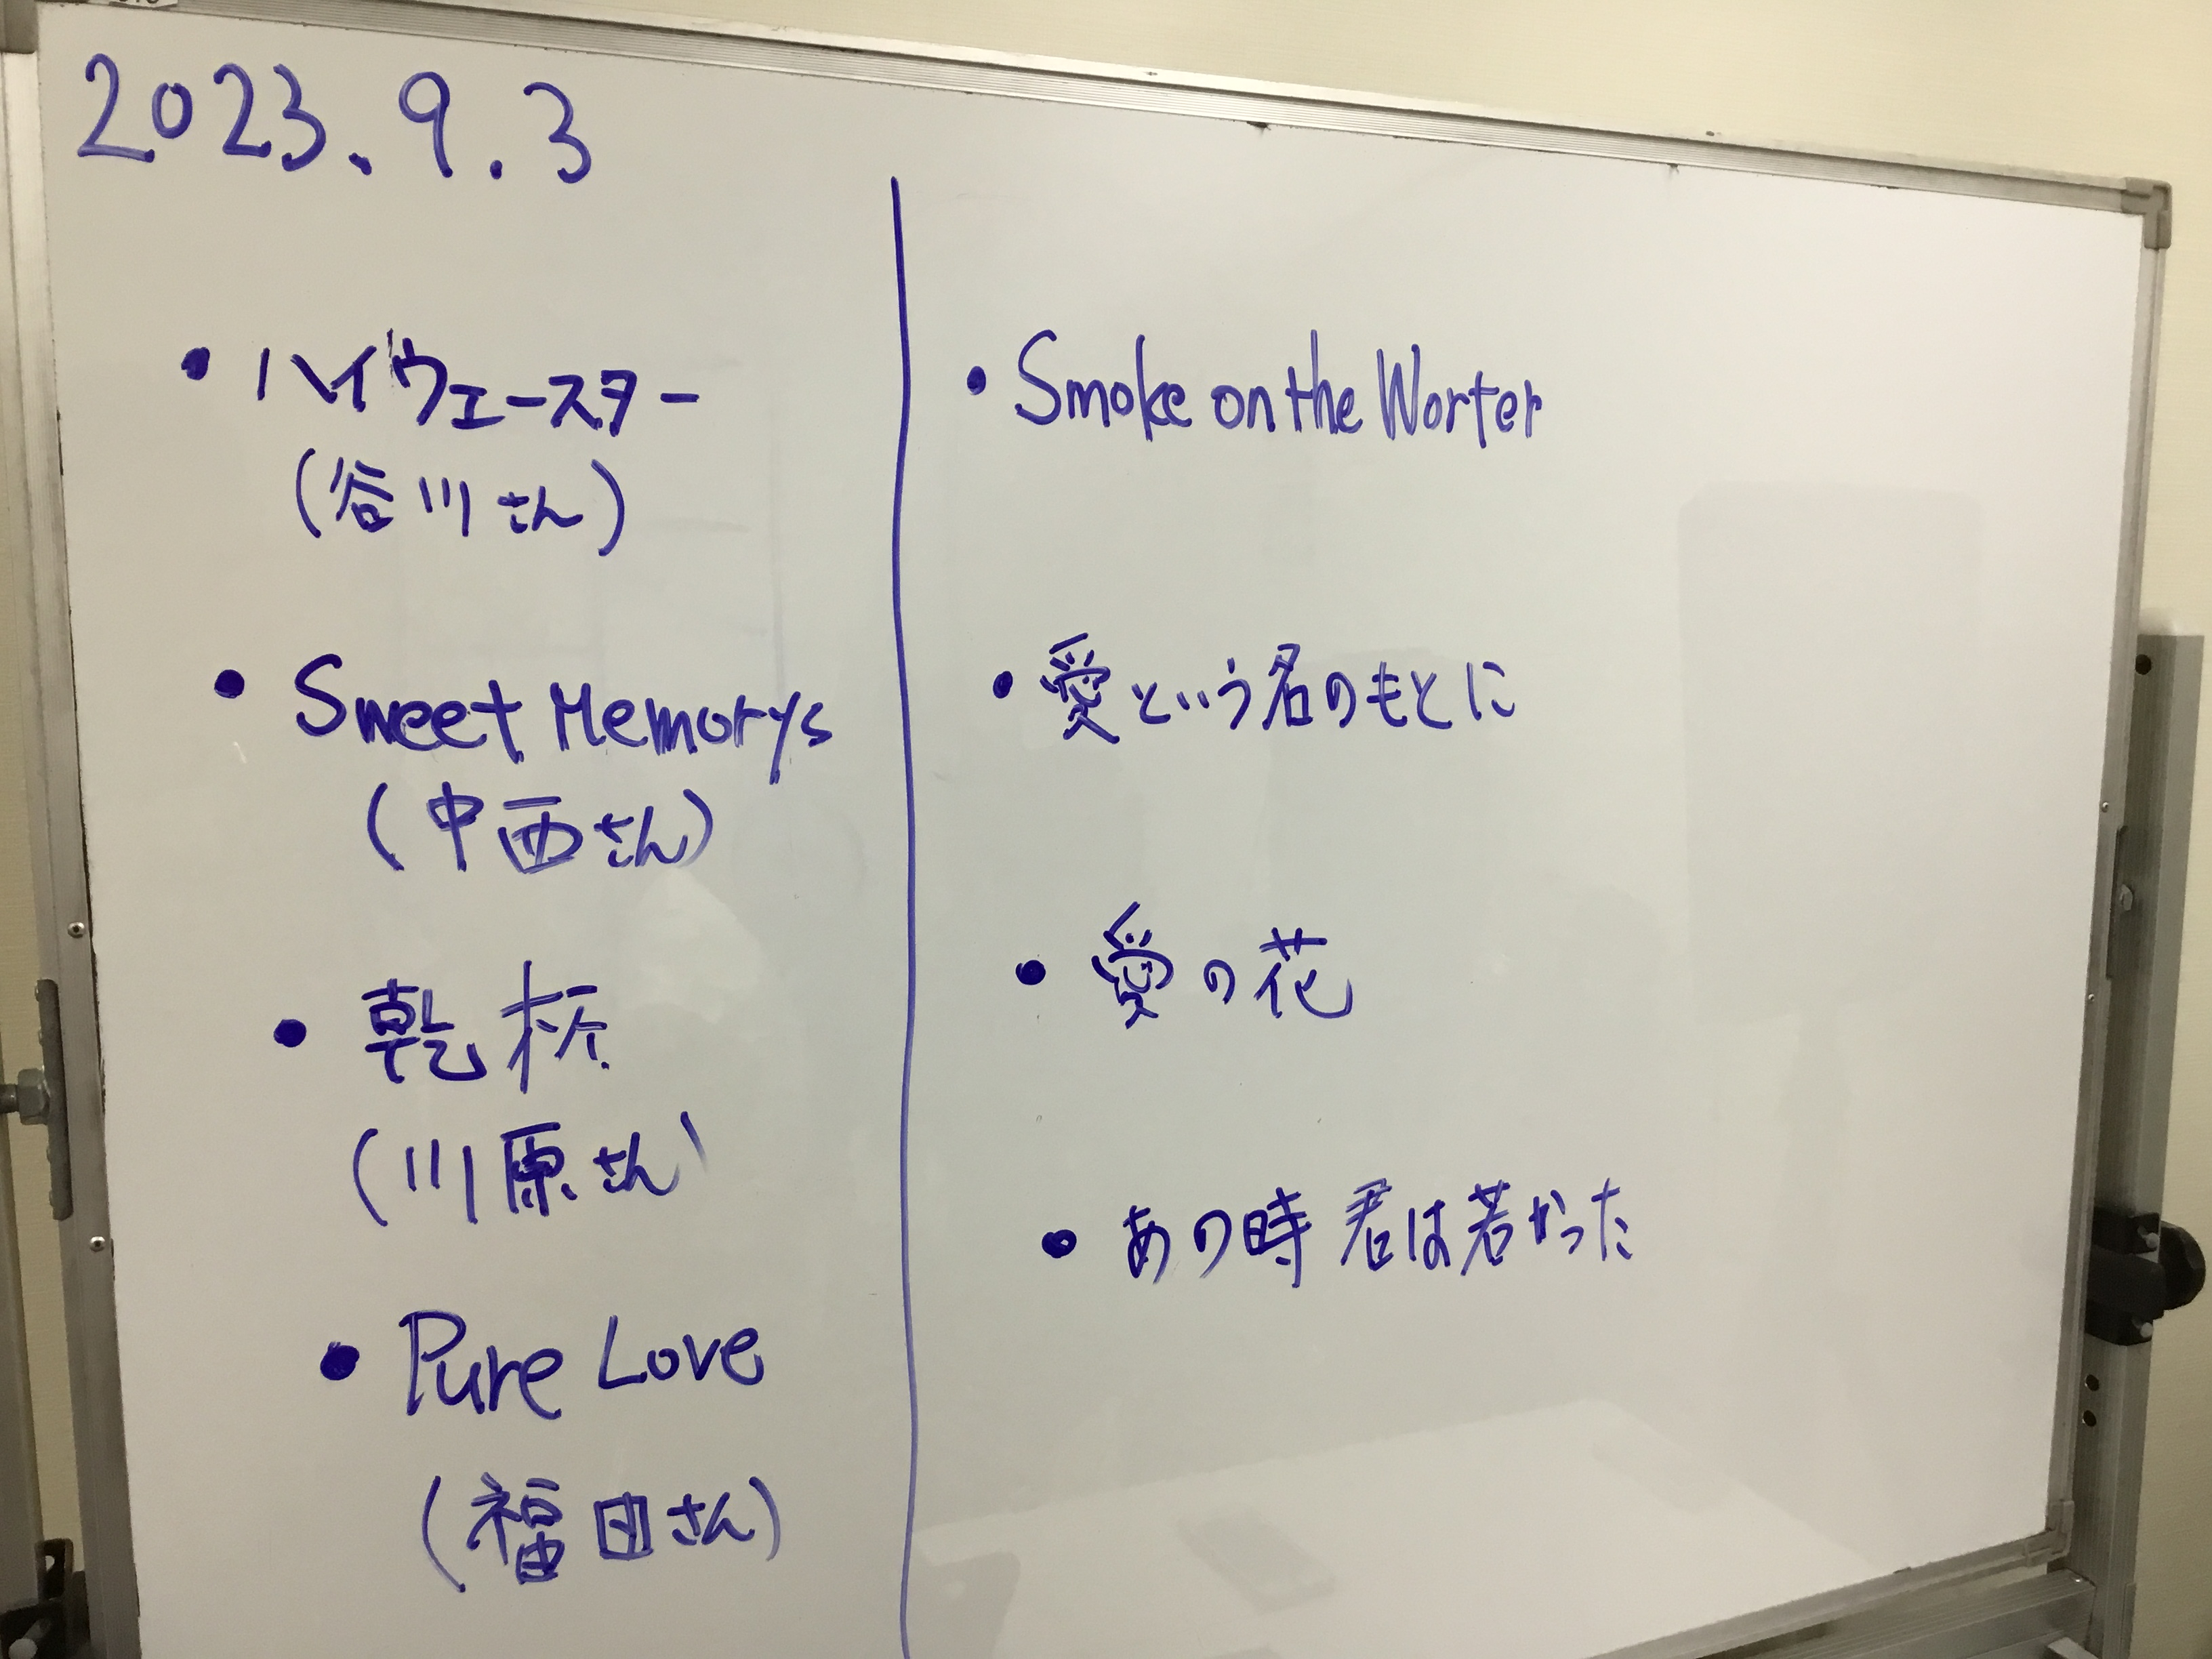 2023.9.3
・ハイウェースター
(谷川さん)
・Sweet Memorys
(中西さん)
・乾杯
(川原さん)
・Pure Love
(福田さん)
・Smoke on the Worter
・愛という名のもとに
・愛の花
・あの時君は若かった